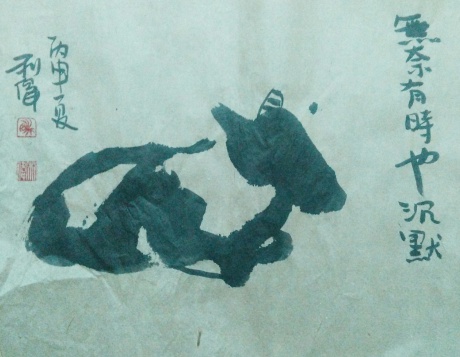 無奈有時也沉默
丙申夏
利偉